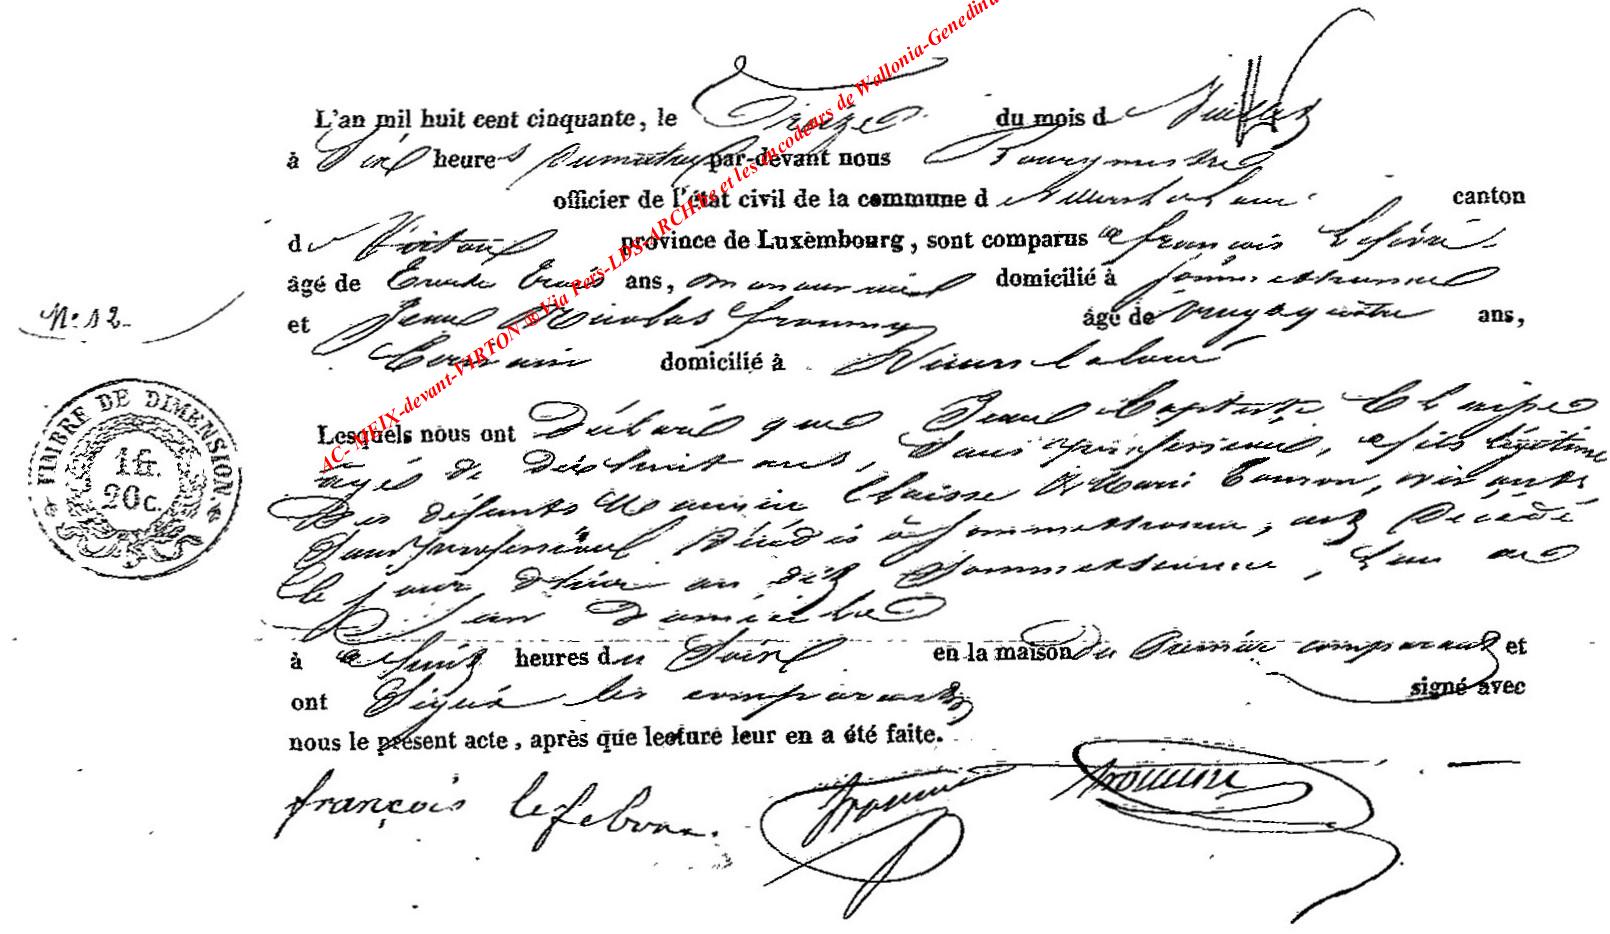 L'an mil huit cent cinquante, le Treize du mois de Juillet
à Six heures du matin par-devant nous Bourgmestre
officier de l'état civil de la commune de Villers la loue canton
de Virton province de Luxembourg, sont comparus françois Lefévre
âgé de Trente trois ans, manouvrier domicilié à Sommethonne
et Jean Nicolas frounn âgé de vingt quatre ans,
domicilié à Villers la loue
Nº 12
TIMBRE DE DIMENSION
1 fr.
20 c.
Lesquels nous ont Déclaré que Jean Baptiste Claisse
agé de dixhuit ans, Sans profession, fils légitime
des défunts Claisse & Marie vivants
Sans profession Décédés à Sommethonne, est Décédé
le jour d'hier au dit Sommethonne, en
Son domicile
à huit heures du Soir en la maison du Premier comparant et
ont Signé les comparants signé avec
nous le présent acte, après que lecture leur en a été faite.
françois lefebvre.
AC-MEIX-devant-VIRTON ® Via Pers-LDS-ARCH.be et les encodeurs de Wallonia-Genedina